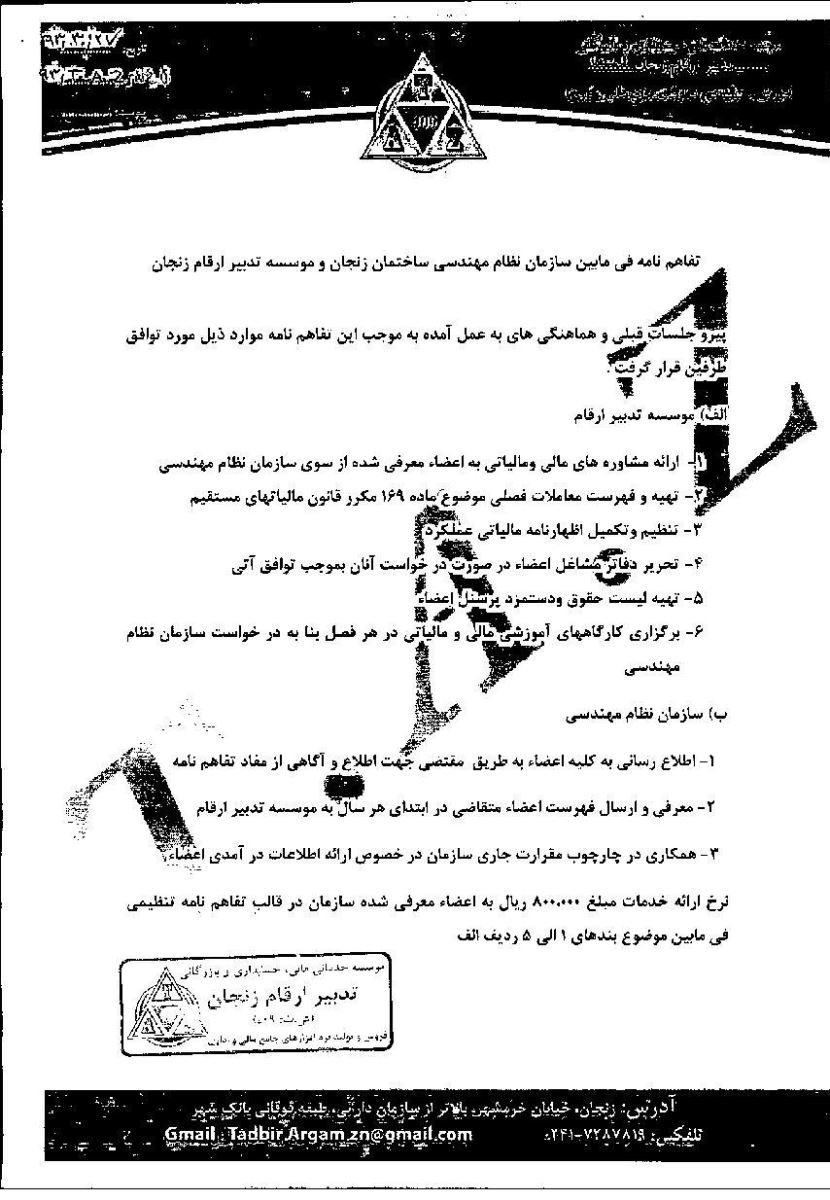 تاریخ:
۹۳،۳،۲۷
تفاهم نامه فی مابین سازمان نظام مهندسی ساختمان زنجان و موسسه تدبیر ارقام زنجان
پیرو جلسات قبلی و هماهنگی های به عمل آمده به موجب این تفاهم نامه موارد ذیل مورد توافق
طرفین قرار گرفت .
الف) موسسه تدبیر ارقام
۱- ارائه مشاوره های مالی ومالیاتی به اعضاء معرفی شده از سوی سازمان نظام مهندسی
۲- تهیه و فهرست معاملات فصلی موضوع ماده ۱۶۹ مکرر قانون مالیاتهای مستقیم
۳- تنظیم وتکمیل اظهارنامه مالیاتی عملکرد
۴- تحریر دفاتر مشاغل اعضاء در صورت در خواست آنان بموجب توافق آتی
۵- تهیه لیست حقوق ودستمزد پرسنل اعضاء
۶- برگزاری کارگاههای آموزشی مالی و مالیاتی در هر فصل بنا به در خواست سازمان نظام
مهندسی
ب) سازمان نظام مهندسی
۱- اطلاع رسانی به کلیه اعضاء به طریق مقتضی جهت اطلاع و آگاهی از مفاد تفاهم نامه
۲- معرفی و ارسال فهرست اعضاء متقاضی در ابتدای هر سال به موسسه تدبیر ارقام
۳- همکاری در چارچوب مقرارت جاری سازمان در خصوص ارائه اطلاعات در آمدی اعضاء
نرخ ارائه خدمات مبلغ ۸۰۰،۰۰۰ ریال به اعضاء معرفی شده سازمان در قالب تفاهم نامه تنظیمی
فی مابین موضوع بندهای ۱ الی ۵ ردیف الف
موسسه خدماتی مالی، حسابداری و بازرگانی
تدبیر ارقام زنجان
فروش و تولید نرم افزارهای جامع مالی و اداری
آدرس: زنجان، خیابان خرمشهر، بالاتر از سازمان دارائی، طبقه فوقانی بانک شهر
تلفکس: ۰۲۴۱-۷۲۸۷۸۱۹
Gmail : Tadbir.Argam.zn@gmail.com